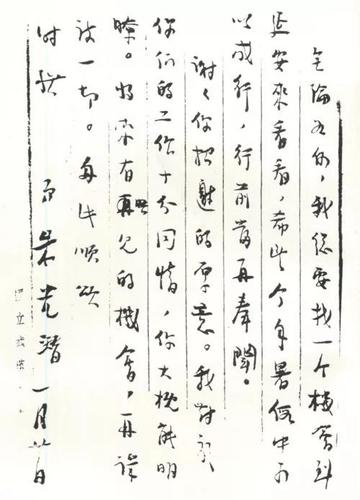 无论如何，我总要找一个机会到
延安来看看，希望今年暑假中可
以成行，行前当再奉闻。
谢谢你招邀的厚意。我对于
你们的工作十分同情，你大概能明
瞭。将来有再见的机会，再详
谈一切。匆此顺颂
时祺
弟朱光潜 一月廿日